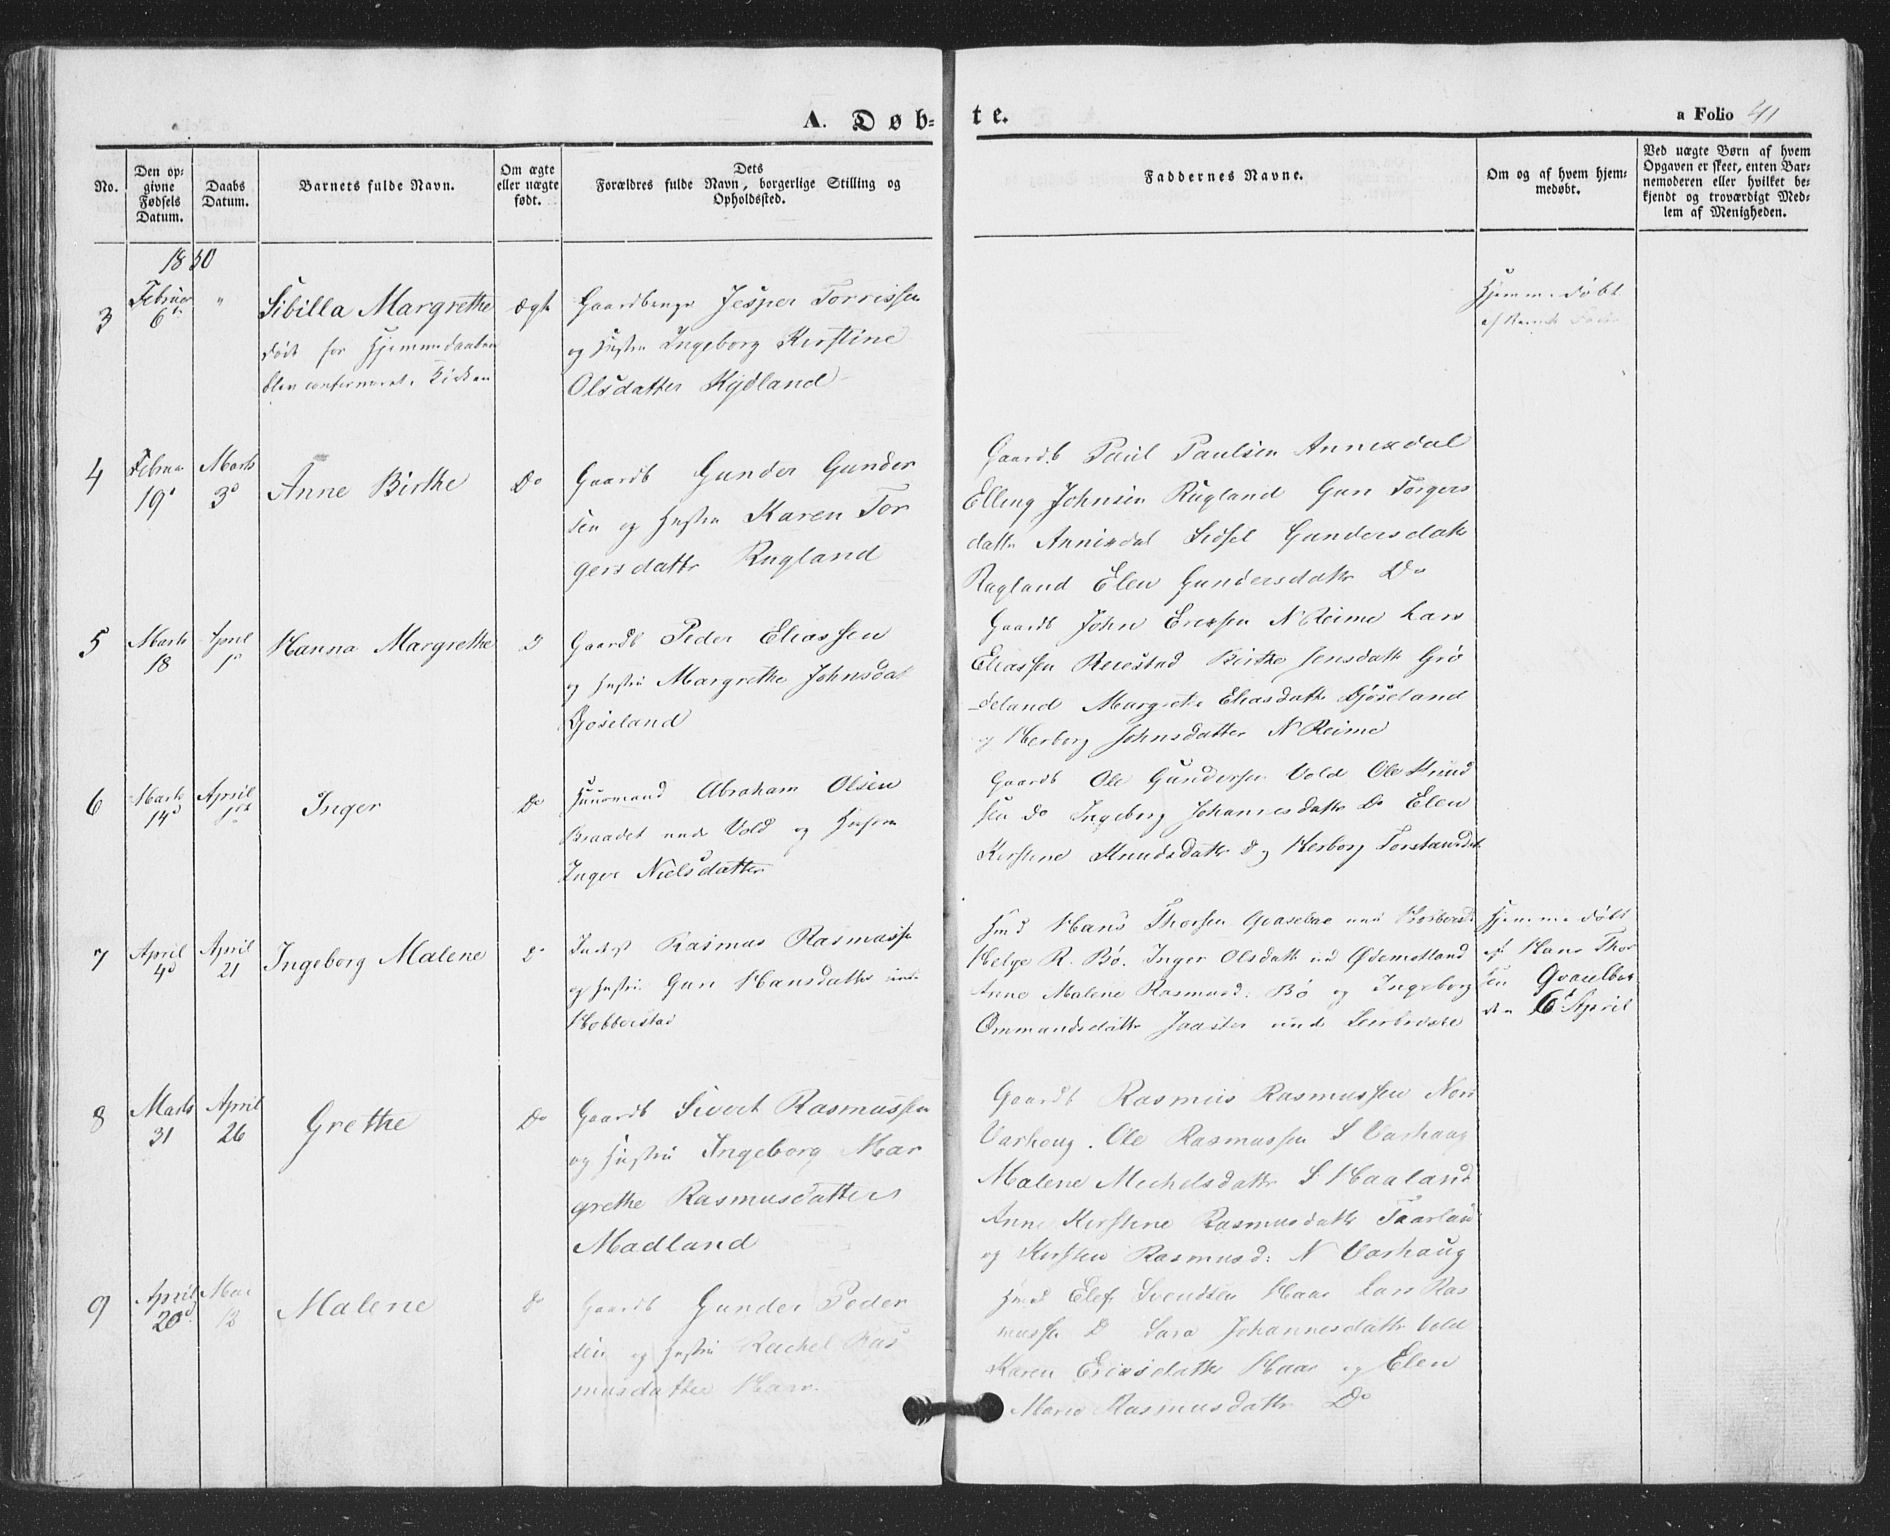 A. Døb-
te.
a Folio 41
No.
Den op-
givne
Fødsels
Datum.
Daabs
Datum.
Barnets fulde Navn.
Om ægte
eller uægte
født.
Dets
Forældres fulde Navn, borgerlige Stilling og
Opholdssted.
Faddernes Navne.
Om og af hvem hjem-
medøbt.
Ved uægte Børn af hvem
Opgaven er skeet, enten Bar-
nemoderen eller hvilket be-
kjendt og troværdigt Med-
lem af Menigheden.
1850
3
Februar
6te
"
Sibilla Margrethe
død før Hjemmedaaben
blev confirmeret i Kirken
ægte
Gaardbruger Jesper Torrissen
og Hustru Ingeborg Kirstine
Olsdatter Kydland
Hjemmedøbt
af Barnets Fader
4
Februar
19d
Marts
3d
Anne Birthe
Do
Gaardb Gunder Gunder
sen og Hustru Karen Tor
gersdattr Rugland
Gaardb. Paul Paulsen Annisdal
Elling Johnsen Rugland Guri Torgers
dattr Annisdal Sidsel Gundersdattr
Rugland Elen Gundersdattr Do
5
Marts
18
April
1d
Hanna Margrethe
D
Gaardb Peder Eliassen
og Hustru Margrethe Johnsdat
Gjøseland
Gaardb John Ericksen N Reime Lars
Eliassen Reiestad Birthe Jensdattr Grø
deland Margrete Eliasdattr Gjøseland
og Herborg Johnsdatter N Reime
6
Marts
14d
April
1ste
Inger
Do
Huusmand Abraham Olsen
Braadet unde Vold og Hustru
Inger Nielsdatter
Gaardb Ole Gundersen Vold Ole Knud
sen Do Ingeborg Johannesdattr Do Elen
Kirstine Knudsdattr D og Herborg Torstensdat
7
April
4d
April
21
Ingeborg Malene
Do
Inderst Rasmus Rasmussen
og Hustru Guri Hansdatter unde
Hobberstad
Hmd Hans Thorsen Qvaelbæ und Hobberst.
Helge R. Bø. Inger Olsdattr und Ødemotland
Anne Malene Rasmusd. Bø og Ingeborg
Ommundsdattr Jaasten und Leerbrække
Hjemmedøbt
af Hans Thor
sen Qvaelbæ
den 6t April
8
Marts
31
April
26
Grethe
Do
Gaardb Sivert Rasmussen
og Hustru Ingeborg Mar
grethe Rasmusdatter
Madland
Gaardb Rasmus Rasmussen Nor
Varhaug. Ole Rasmussen S Varhaug
Malene Michelsdattr S Haaland
Anne Kirstine Rasmusdattr Taarland
og Kirsten Rasmusd: N Varhaug
9
April
20d
Mai
12
Malene
Do
Gaardb Gunder Peder
sen og Hustru Rachel Ras
musdatter Haar.
Hmd Elef Svendsen Haar Lars Ras
mussen D Sara Johannesdattr Vold
Karen Ericksdattr Haar og Elen
Maria Rasmusdattr Do